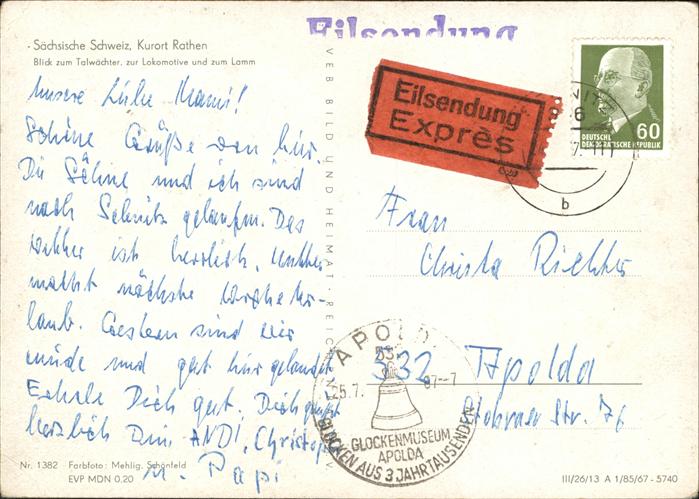 Eilsendung
- Sächsische Schweiz, Kurort Rathen
Blick zum Talwächter, zur Lokomotive und zum Lamm
Unsere Liebe Mami!
Schöne Grüße von hier.
Die Söhne und ich sind
nach Schmilz gelaufen. Das
Wetter ist herrlich. Mutter
macht nächste Woche Ur-
laub. Gestern sind wir
müde und gut hier gelandet
Erhole Dich gut. Dich grüßt
herzlich Dein ANDI, Christoph
u. Papi
Nr. 1382 Farbfoto: Mehlig, Schönfeld
EVP MDN 0.20
VEB BILD UND HEIMAT REICHENBACH
Eilsendung
Exprès
60
DEUTSCHE
DEMOKRATISCHE REPUBLIK
b
Frau
Christa Richter
532 Apolda
Str. 76
APOLDA
532
5.7. 67-7
GLOCKENMUSEUM
APOLDA
GLOCKEN AUS 3 JAHRTAUSENDEN
III/26/13 A 1/85/67 - 5740